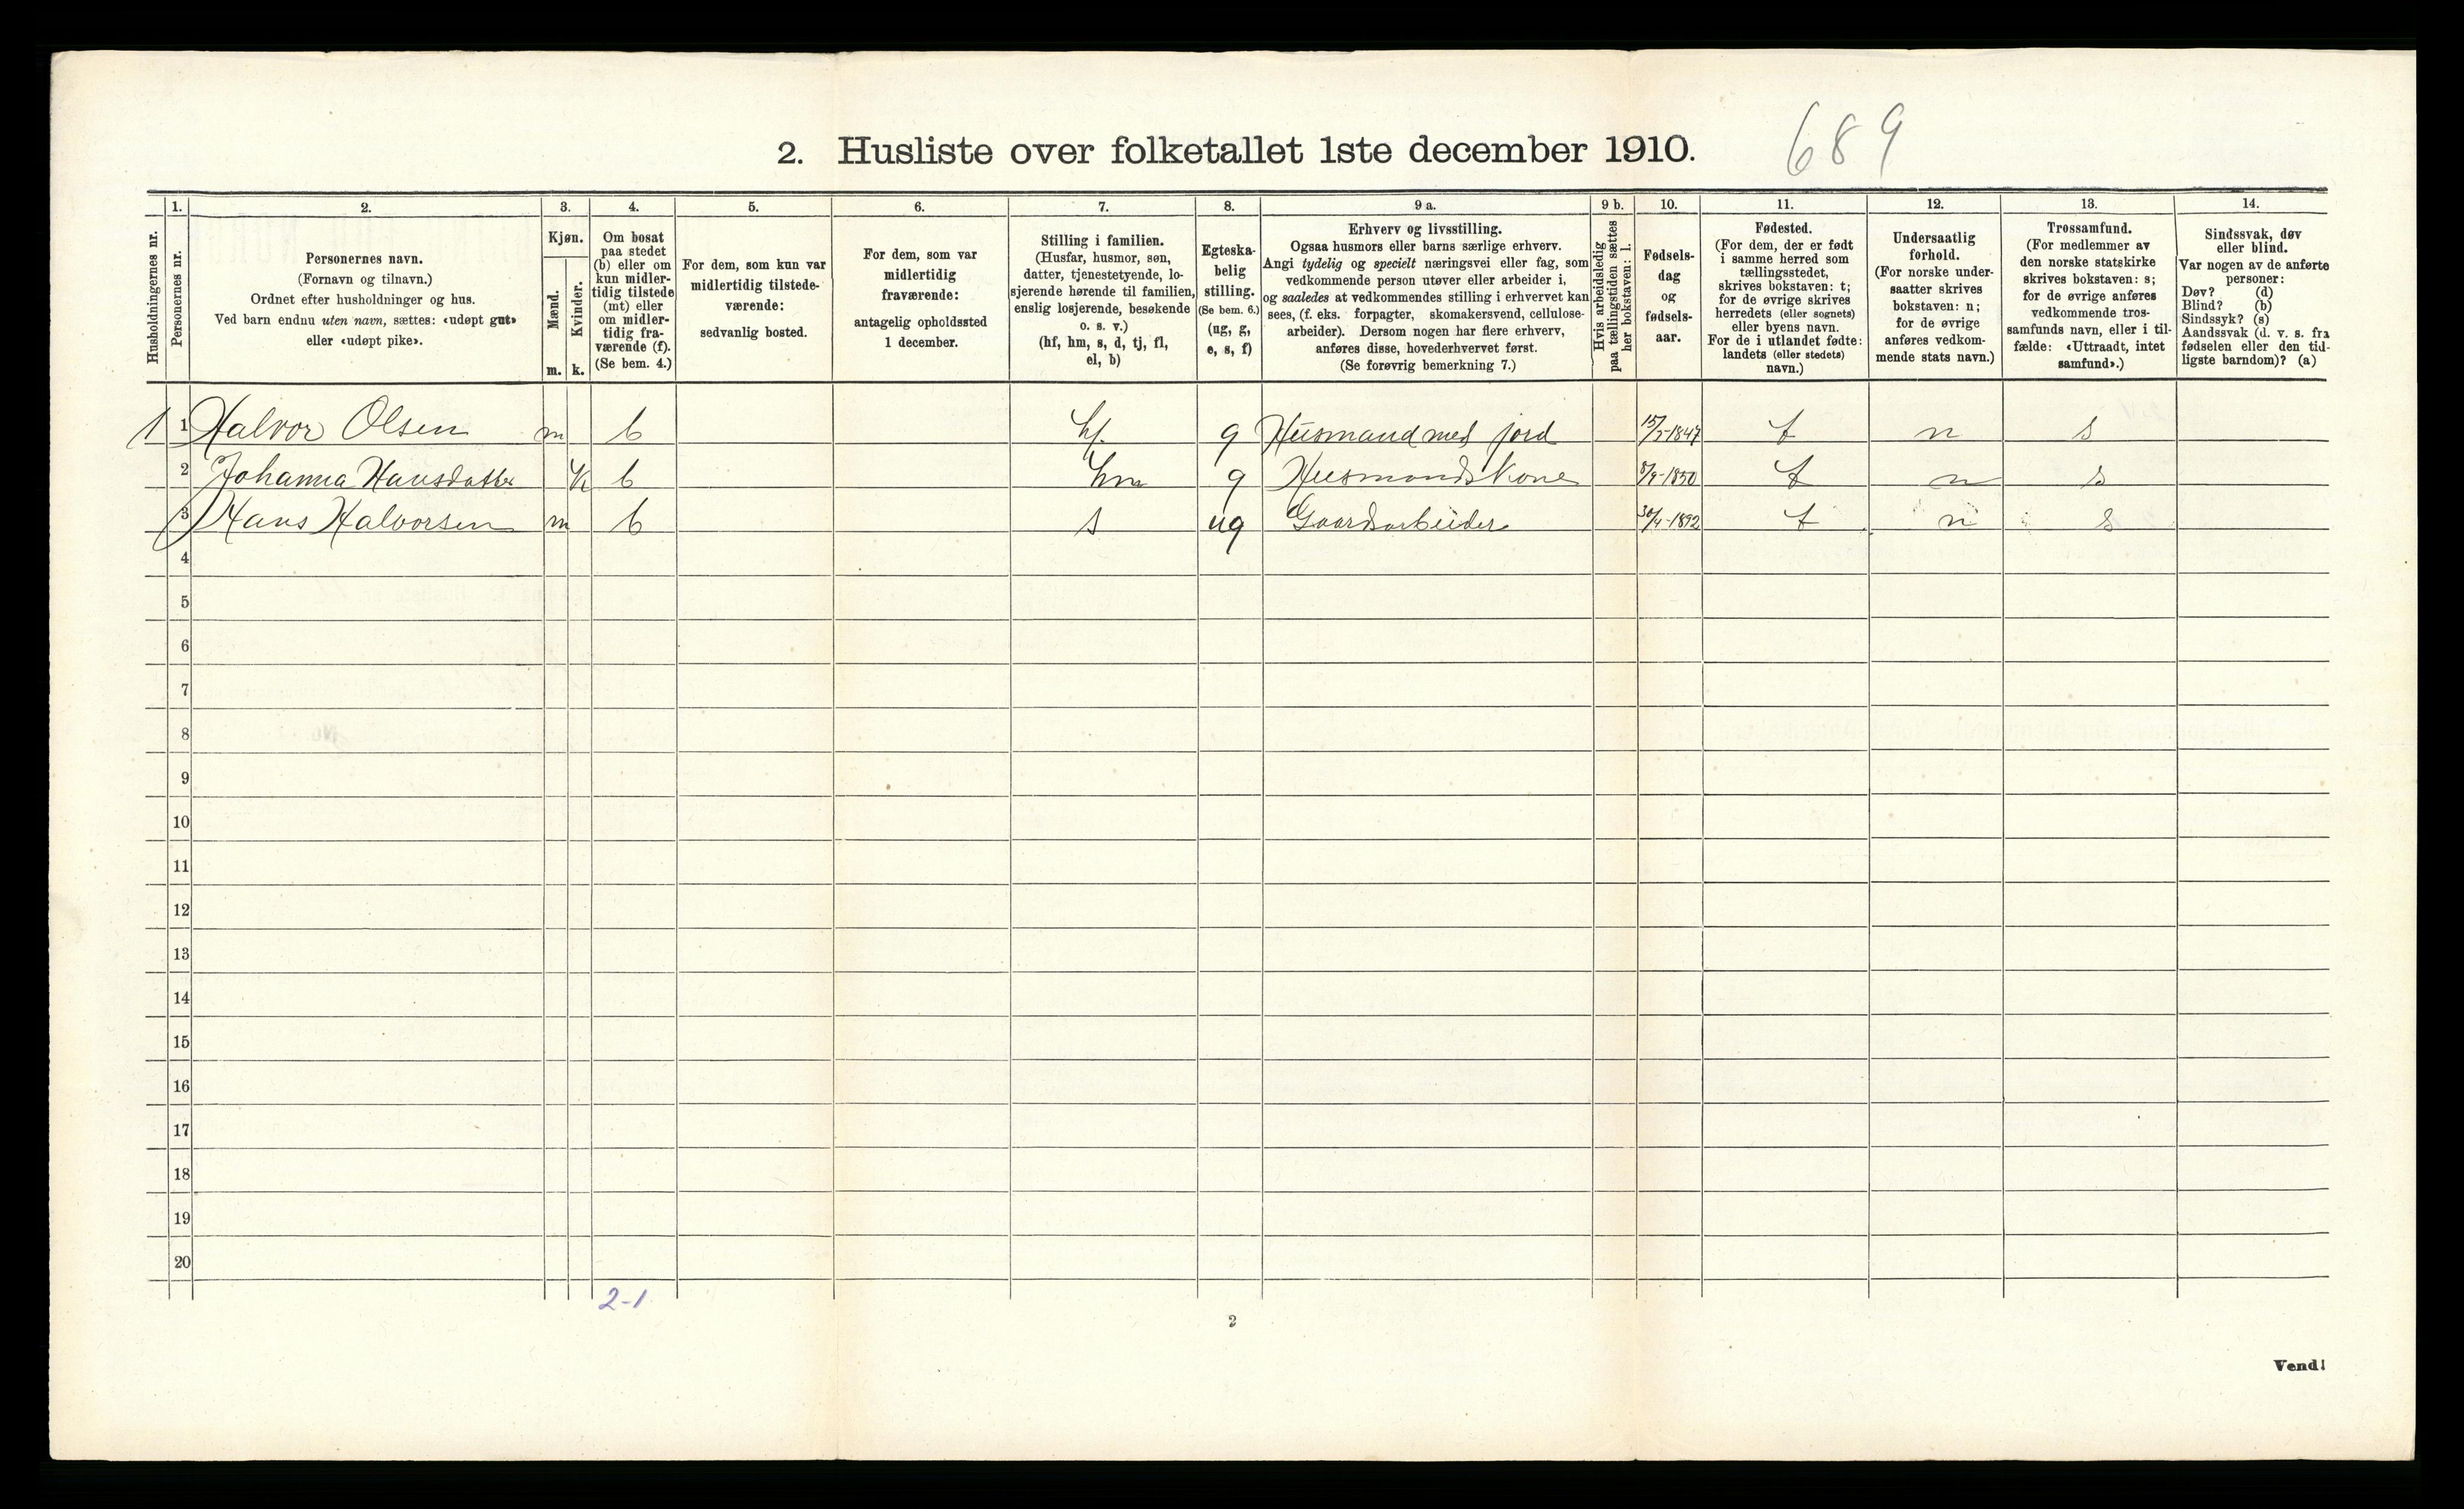 2. Husliste over folketallet 1ste december 1910. 689
Husholdningernes nr.
1.
Personernes nr.
2.
Personernes navn.
(Fornavn og tilnavn.)
Ordnet efter husholdninger og hus.
Ved barn endnu uten navn, sættes: «udøpt gut»
eller «udøpt pike».
3.
Kjøn.
Mænd.
Kvinder.
m. k.
4.
Om bosat
paa stedet
(b) eller om
kun midler-
tidig tilstede
(mt) eller
om midler-
tidig fra-
værende (f).
(Se bem. 4.)
5.
For dem, som kun var
midlertidig tilstede-
værende:
sedvanlig bosted.
6.
For dem, som var
midlertidig
fraværende:
antagelig opholdssted
1 december.
7.
Stilling i familien.
(Husfar, husmor, søn,
datter, tjenestetyende, lo-
sjerende hørende til familien,
enslig losjerende, besøkende
o. s. v.)
(hf, hm, s, d, tj, fl,
el, b)
8.
Egteska-
belig
stilling.
(Se bem. 6.)
(ug, g,
e, s, f)
9 a.
Erhverv og livsstilling.
Ogsaa husmors eller barns særlige erhverv.
Angi tydelig og specielt næringsvei eller fag, som
vedkommende person utøver eller arbeider i,
og saaledes at vedkommendes stilling i erhvervet kan
sees, (f. eks. forpagter, skomakersvend, cellulose-
arbeider). Dersom nogen har flere erhverv,
anføres disse, hovederhvervet først.
(Se forøvrig bemerkning 7.)
9 b.
Hvis arbeidsledig
paa tællingstiden sættes
her bokstaven: l.
10.
Fødsels-
dag
og
fødsels-
aar.
11.
Fødested.
(For dem, der er født
i samme herred som
tællingsstedet,
skrives bokstaven: t;
for de øvrige skrives
herredets (eller sognets)
eller byens navn.
For de i utlandet fødte:
landets (eller stedets)
navn.)
12.
Undersaatlig
forhold.
(For norske under-
saatter skrives
bokstaven: n;
for de øvrige
anføres vedkom-
mende stats navn.)
13.
Trossamfund.
(For medlemmer av
den norske statskirke
skrives bokstaven: s;
for de øvrige anføres
vedkommende tros-
samfunds navn, eller i til-
fælde: «Uttraadt, intet
samfund».)
14.
Sindssvak, døv
eller blind.
Var nogen av de anførte
personer:
Døv? (d)
Blind? (b)
Sindssyk? (s)
Aandssvak (d. v. s. fra
fødselen eller den tid-
ligste barndom)? (a)
1 1 Halvor Olsen m b hf. g Husmand med jord t n s
2 Johanna Hansdatter k b hm g Husmandskone 8/9-1850 t n s
3 Hans Halvorsen m b s ug Gaardsarbeider 30/4-1892 t n s
4
5
6
7
8
9
10
11
12
13
14
15
16
17
18
19
20
2-1
2
Vend!